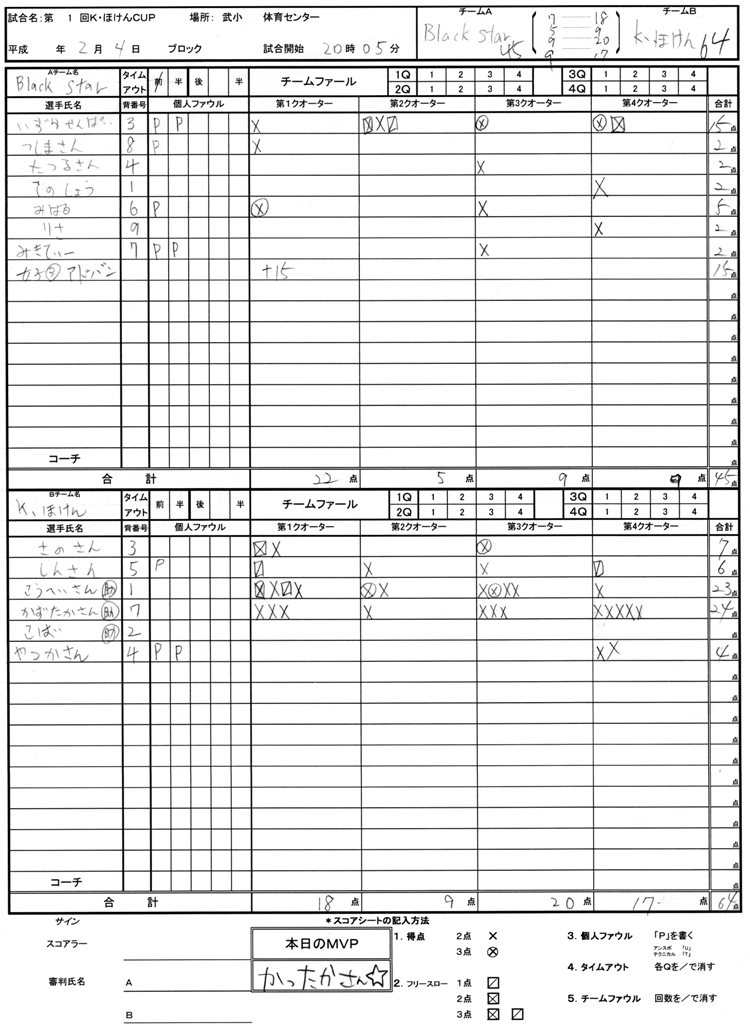 試合名：第 1 回K・ほけんCUP 場所： 武小 体育センター
平成 年 2月 4日 ブロック 試合開始 20時05分
チームA Black Star 45
7 18
5 9
9 20
9 17
チームB K、ほけん 64
Aチーム名 Black Star タイムアウト 前 半 後 半 チームファール 1Q 1 2 3 4 3Q 1 2 3 4
2Q 4Q
選手氏名 背番号 個人ファウル 第1クオーター 第2クオーター 第3クオーター 第4クオーター 合計
3 P P X ⊠X〼 ⊗ ⊗⊠ 15点
つしまさん 8 P X 2点
たつるさん 4 X 2点
てのしょう 1 X 2点
みはる 6 P ⊗ X 5点
りさ 9 X 2点
みきてぃー 7 P P X 2点
女子 アドバン +15 15点
コーチ 点
合計 22点 5点 9点 9点 45点
Bチーム名 K、ほけん タイムアウト 前 半 後 半 チームファール 1Q 1 2 3 4 3Q 1 2 3 4
2Q 4Q
選手氏名 背番号 個人ファウル 第1クオーター 第2クオーター 第3クオーター 第4クオーター 合計
さのさん 3 ⊠X ⊗ 7点
しんさん 5 P 〼 X X 〼 6点
こうへいさん 助 1 ⊠X〼X ⊗X X⊗XX X 23点
かずたかさん 助 7 XXX X XXX XXXXX 24点
こばじ 助 2 点
やつかさん 4 P P XX 4点
コーチ 点
合計 18点 9点 20点 17点 64点
サイン
スコアラー
審判氏名 A
B
本日のMVP
かったかさん☆
＊スコアシートの記入方法
1. 得点 2点 ×
3点 ⊗
2. フリースロー 1点 〼
2点 ⊠
3点 ⊠ 〼
3. 個人ファウル 「P」を書く
アンスポ 「U」
テクニカル 「T」
4. タイムアウト 各Qを／で消す
5. チームファウル 回数を／で消す